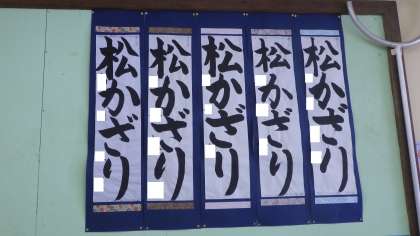 松かざり
松かざり
松かざり
松かざり
松かざり